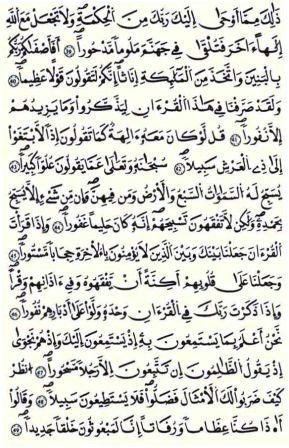 ذَٰلِكَ مِمَّا أَوْحَىٰ إِلَيْكَ رَبُّكَ مِنَ الْحِكْمَةِ وَلَا تَجْعَلْ مَعَ اللَّهِ
إِلَٰهًا آخَرَ فَتُلْقَىٰ فِي جَهَنَّمَ مَلُومًا مَدْحُورًا أَفَأَصْفَاكُمْ رَبُّكُمْ
بِالْبَنِينَ وَاتَّخَذَ مِنَ الْمَلَٰئِكَةِ إِنَاثًا إِنَّكُمْ لَتَقُولُونَ قَوْلًا عَظِيمًا
وَلَقَدْ صَرَّفْنَا فِي هَٰذَا الْقُرْءَانِ لِيَذَّكَّرُوا وَمَا يَزِيدُهُمْ
إِلَّا نُفُورًا قُل لَّوْ كَانَ مَعَهُ ءَالِهَةٌ كَمَا تَقُولُونَ إِذًا لَّابْتَغَوْا
إِلَىٰ ذِي الْعَرْشِ سَبِيلًا سُبْحَٰنَهُ وَتَعَٰلَىٰ عَمَّا يَقُولُونَ عُلُوًّا كَبِيرًا
يُسَبِّحُ لَهُ السَّمَٰوَٰتُ السَّبْعُ وَالْأَرْضُ وَمَن فِيهِنَّ وَإِن مِّن شَيْءٍ إِلَّا يُسَبِّحُ
بِحَمْدِهِ وَلَٰكِن لَّا تَفْقَهُونَ تَسْبِيحَهُمْ إِنَّهُ كَانَ حَلِيمًا غَفُورًا وَإِذَا قَرَأْتَ
الْقُرْءَانَ جَعَلْنَا بَيْنَكَ وَبَيْنَ الَّذِينَ لَا يُؤْمِنُونَ بِالْآخِرَةِ حِجَابًا مَّسْتُورًا
وَجَعَلْنَا عَلَىٰ قُلُوبِهِمْ أَكِنَّةً أَن يَفْقَهُوهُ وَفِي ءَاذَانِهِمْ وَقْرًا
وَإِذَا ذَكَرْتَ رَبَّكَ فِي الْقُرْءَانِ وَحْدَهُ وَلَّوْا عَلَىٰ أَدْبَٰرِهِمْ نُفُورًا
نَّحْنُ أَعْلَمُ بِمَا يَسْتَمِعُونَ بِهِ إِذْ يَسْتَمِعُونَ إِلَيْكَ وَإِذْ هُمْ نَجْوَىٰ
إِذْ يَقُولُ الظَّٰلِمُونَ إِن تَتَّبِعُونَ إِلَّا رَجُلًا مَّسْحُورًا انظُرْ
كَيْفَ ضَرَبُوا لَكَ الْأَمْثَالَ فَضَلُّوا فَلَا يَسْتَطِيعُونَ سَبِيلًا وَقَالُوا
أَءِذَا كُنَّا عِظَٰمًا وَرُفَٰتًا إِنَّا لَمَبْعُوثُونَ خَلْقًا جَدِيدًا